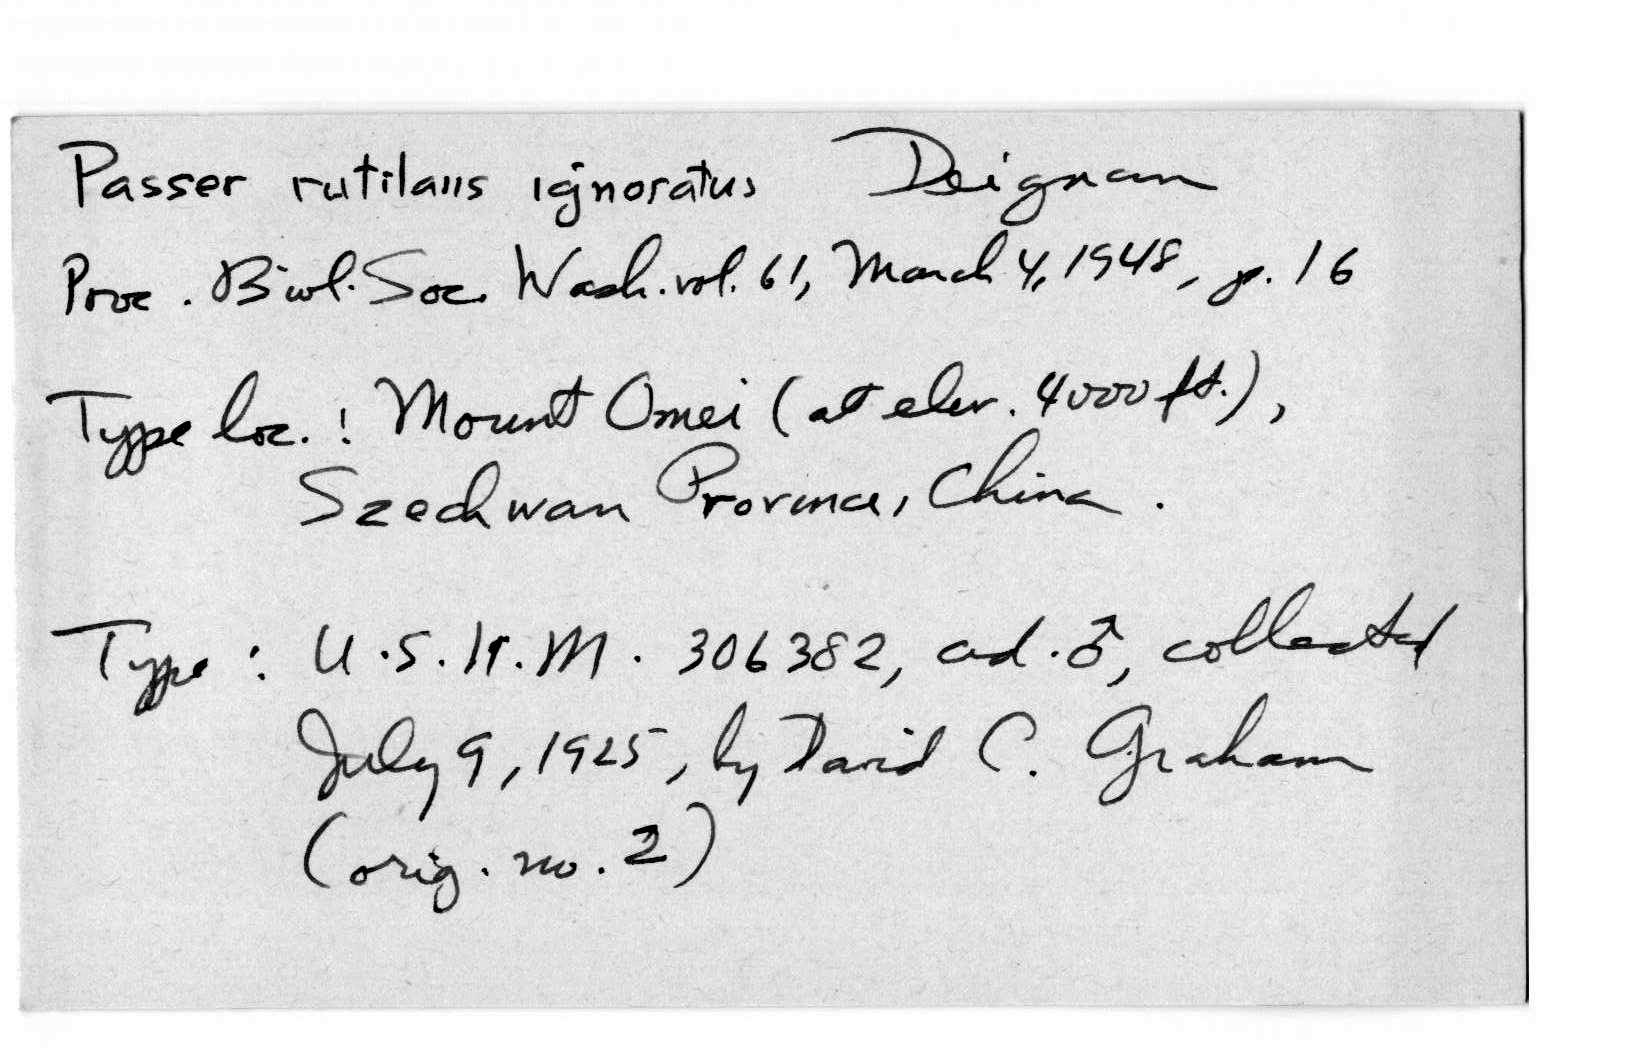 Passer rutilans ignoratus Deignan
Proc. Biol. Soc. Wash. vol. 61, March 4, 1948, p. 16
Type loc.: Mount Omei (at elev. 4000 ft.),
Szechwan Province, China.
Type: U.S.N.M. 306382, ad. ♂, collected
July 9, 1925, by David C. Graham
(orig. no. 2)